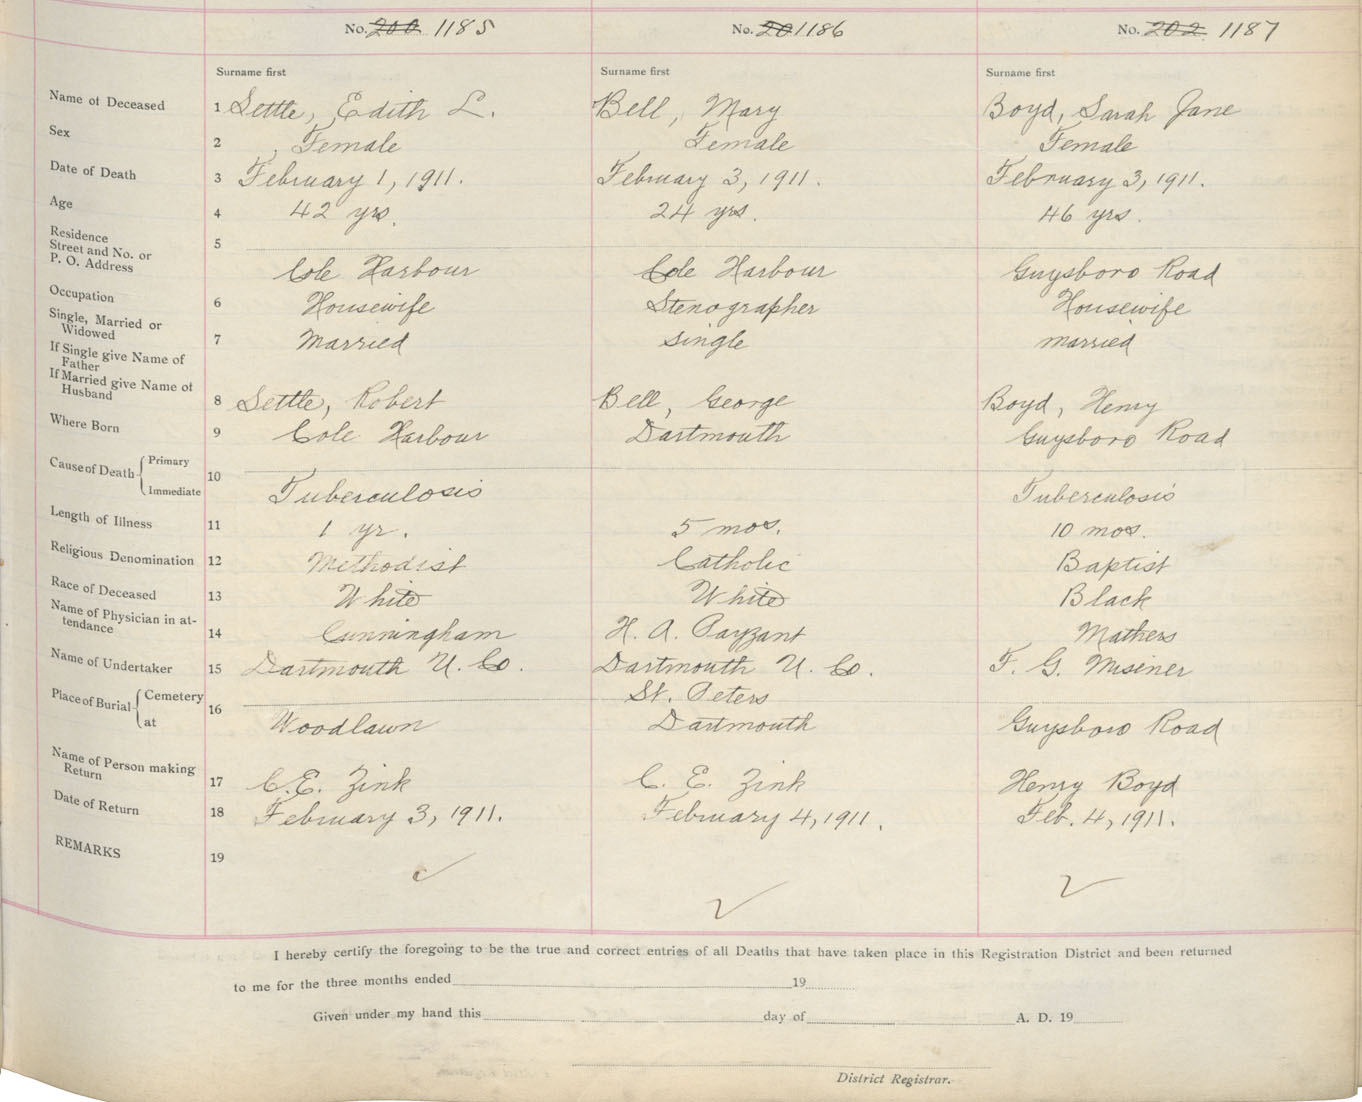 No. 200 1185 No. 20 1186 No. 202 1187
Surname first Surname first Surname first
Name of Deceased 1 Settle, Edith L. Bell, Mary Boyd, Sarah Jane
Sex 2 Female Female Female
Date of Death 3 February 1, 1911. February 3, 1911. February 3, 1911.
Age 4 42 yrs. 24 yrs. 46 yrs.
Residence 5
Street and No. or
P. O. Address Cole Harbour Cole Harbour Guysboro Road
Occupation 6 Housewife Stenographer Housewife
Single, Married or
Widowed 7 Married single married
If Single give Name of
Father
If Married give Name of
Husband 8 Settle, Robert Bell, George Boyd, Henry
Where Born 9 Cole Harbour Dartmouth Guysboro Road
Cause of Death Primary 10
Immediate Tuberculosis Tuberculosis
Length of Illness 11 1 yr. 5 mos. 10 mos.
Religious Denomination 12 Methodist Catholic Baptist
Race of Deceased 13 White White Black
Name of Physician in at-
tendance 14 Cunningham H. A. Payzant Mathers
Name of Undertaker 15 Dartmouth U. Co. Dartmouth U. Co. F. G. Misener
Place of Burial Cemetery 16 St. Peters
at Woodlawn Dartmouth Guysboro Road
Name of Person making
Return 17 C. E. Zink C. E. Zink Henry Boyd
Date of Return 18 February 3, 1911. February 4, 1911. Feb. 4, 1911.
REMARKS 19
I hereby certify the foregoing to be the true and correct entries of all Deaths that have taken place in this Registration District and been returned
to me for the three months ended 19
Given under my hand this day of A. D. 19
District Registrar.